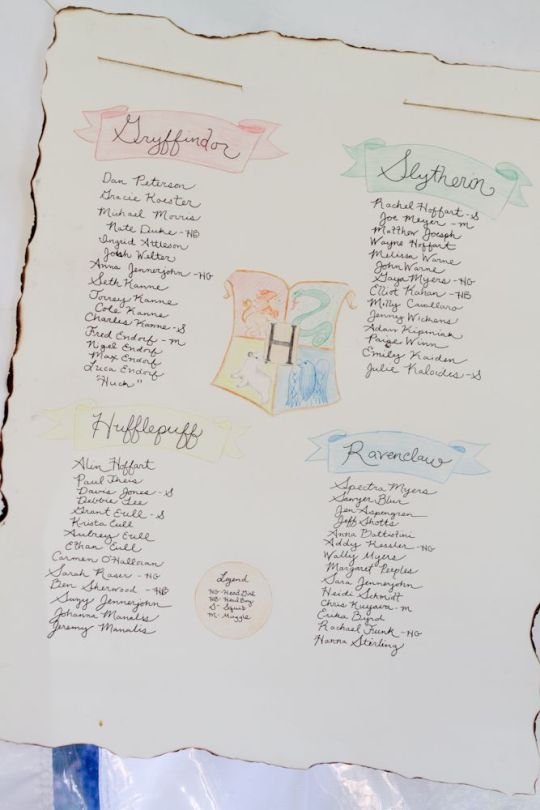 Gryffindor
Dan Peterson
Gracie Koester
Michael Morris
Nate Duke - HB
Ingrid Attleson
Josh Walter
Anna Jennerjohn - HG
Seth Kanne
Torrey Kanne
Cole Kanne
Charles Kanne - S
Fred Endorf - M
Nigel Endorf
Max Endorf
Luca Endorf
"Huck"
Slytheron
Rachel Hoffart - S
Joe Meyer - M
Matthew Joseph
Wayne Hoffart
Melissa Warne
John Warne
Gaya Myers - HG
Elliot Kahan - HB
Milly Cavallaro
Jenny Wickens
Adam Kipiniak
Paige Winn
Emily Kaiden
Julie Kaloides - S
H
Hufflepuff
Alin Hoffart
Paul Theis
Davis Jones - S
Debbie Lee
Grant Eull - S
Krista Eull
Aubrey Eull
Ethan Eull
Carmen O'Halloran
Sarah Raser - HG
Ben Sherwood - HB
Suzy Jennerjohn
Johanna Manalis
Jeremy Manalis
Ravenclaw
Spectra Myers
Sawyer Blur
Jen Aspengren
Jeff Shotts
Anna Battistini
Addy Kessler - HG
Wally Myers
Margret Peeples
Sara Jennerjohn
Heidi Schmidt
Chris Kuyava - M
Erika Byrd
Rachael Funk - HG
Hanna Sterling
Legend
HG - Head Girl
HB - Head Boy
S - Squib
M - Muggle